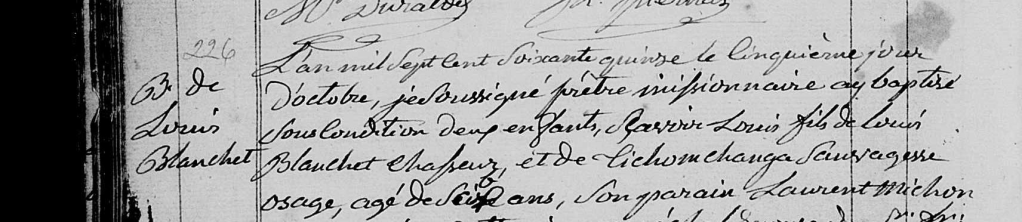 Mr Duralde
226
L'an mil Sept Cent Soixante quinze le Cinquième jour
B. de
D'octobre, je Soussigné prêtre missionnaire ay baptisé
Louis
Sous Condition deux enfants, Savoir Louis fils de Louis
Blanchet
Blanchet Chasseur, et de Tichomchanga Sauvagesse
osage, agé de ans, Son parain Laurent Michon